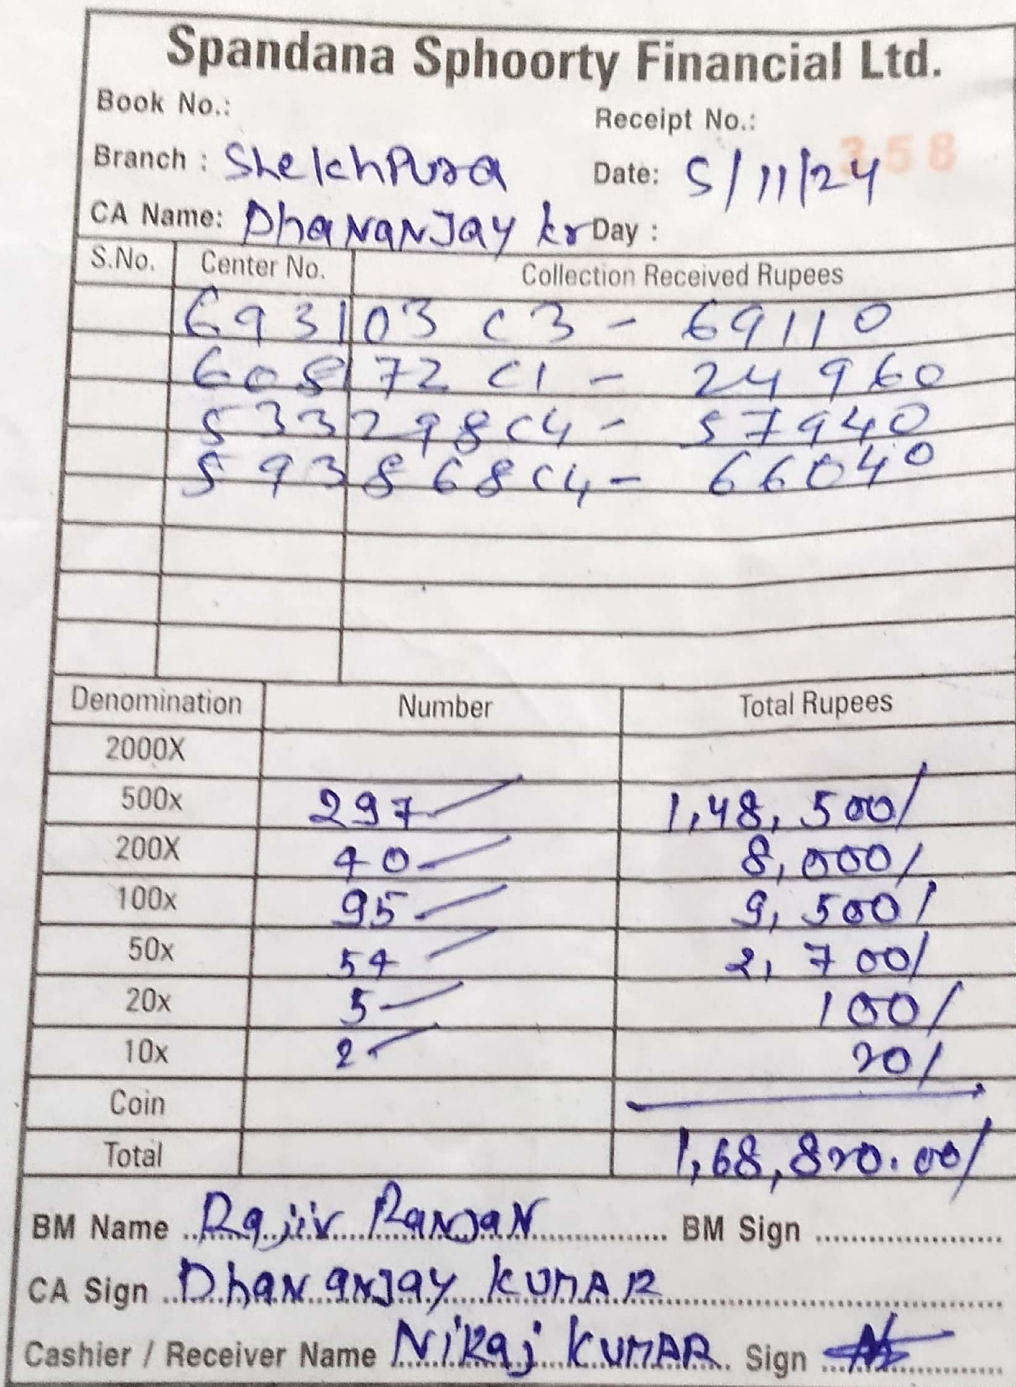 Spandana Sphoorty Financial Ltd.
Book No.:
Receipt No.: 358
Branch : Sheikhpura Date: 5/11/24
CA Name: Dhananjay kr Day :
S.No. Center No. Collection Received Rupees
693103 C3 - 69110
608172 C1 - 24960
533298 C4 - 57940
593868 C4 - 66040
Denomination Number Total Rupees
2000X
500x 297 1,48,500/
200X 40 8,000/
100x 95 9,500/
50x 54 2,700/
20x 5 100/
10x 2 20/
Coin
Total 1,68,820.00/
BM Name Rajiv RanJaN BM Sign
CA Sign DhaNanJay KUMAR
Cashier / Receiver Name NiRaj KUMAR Sign